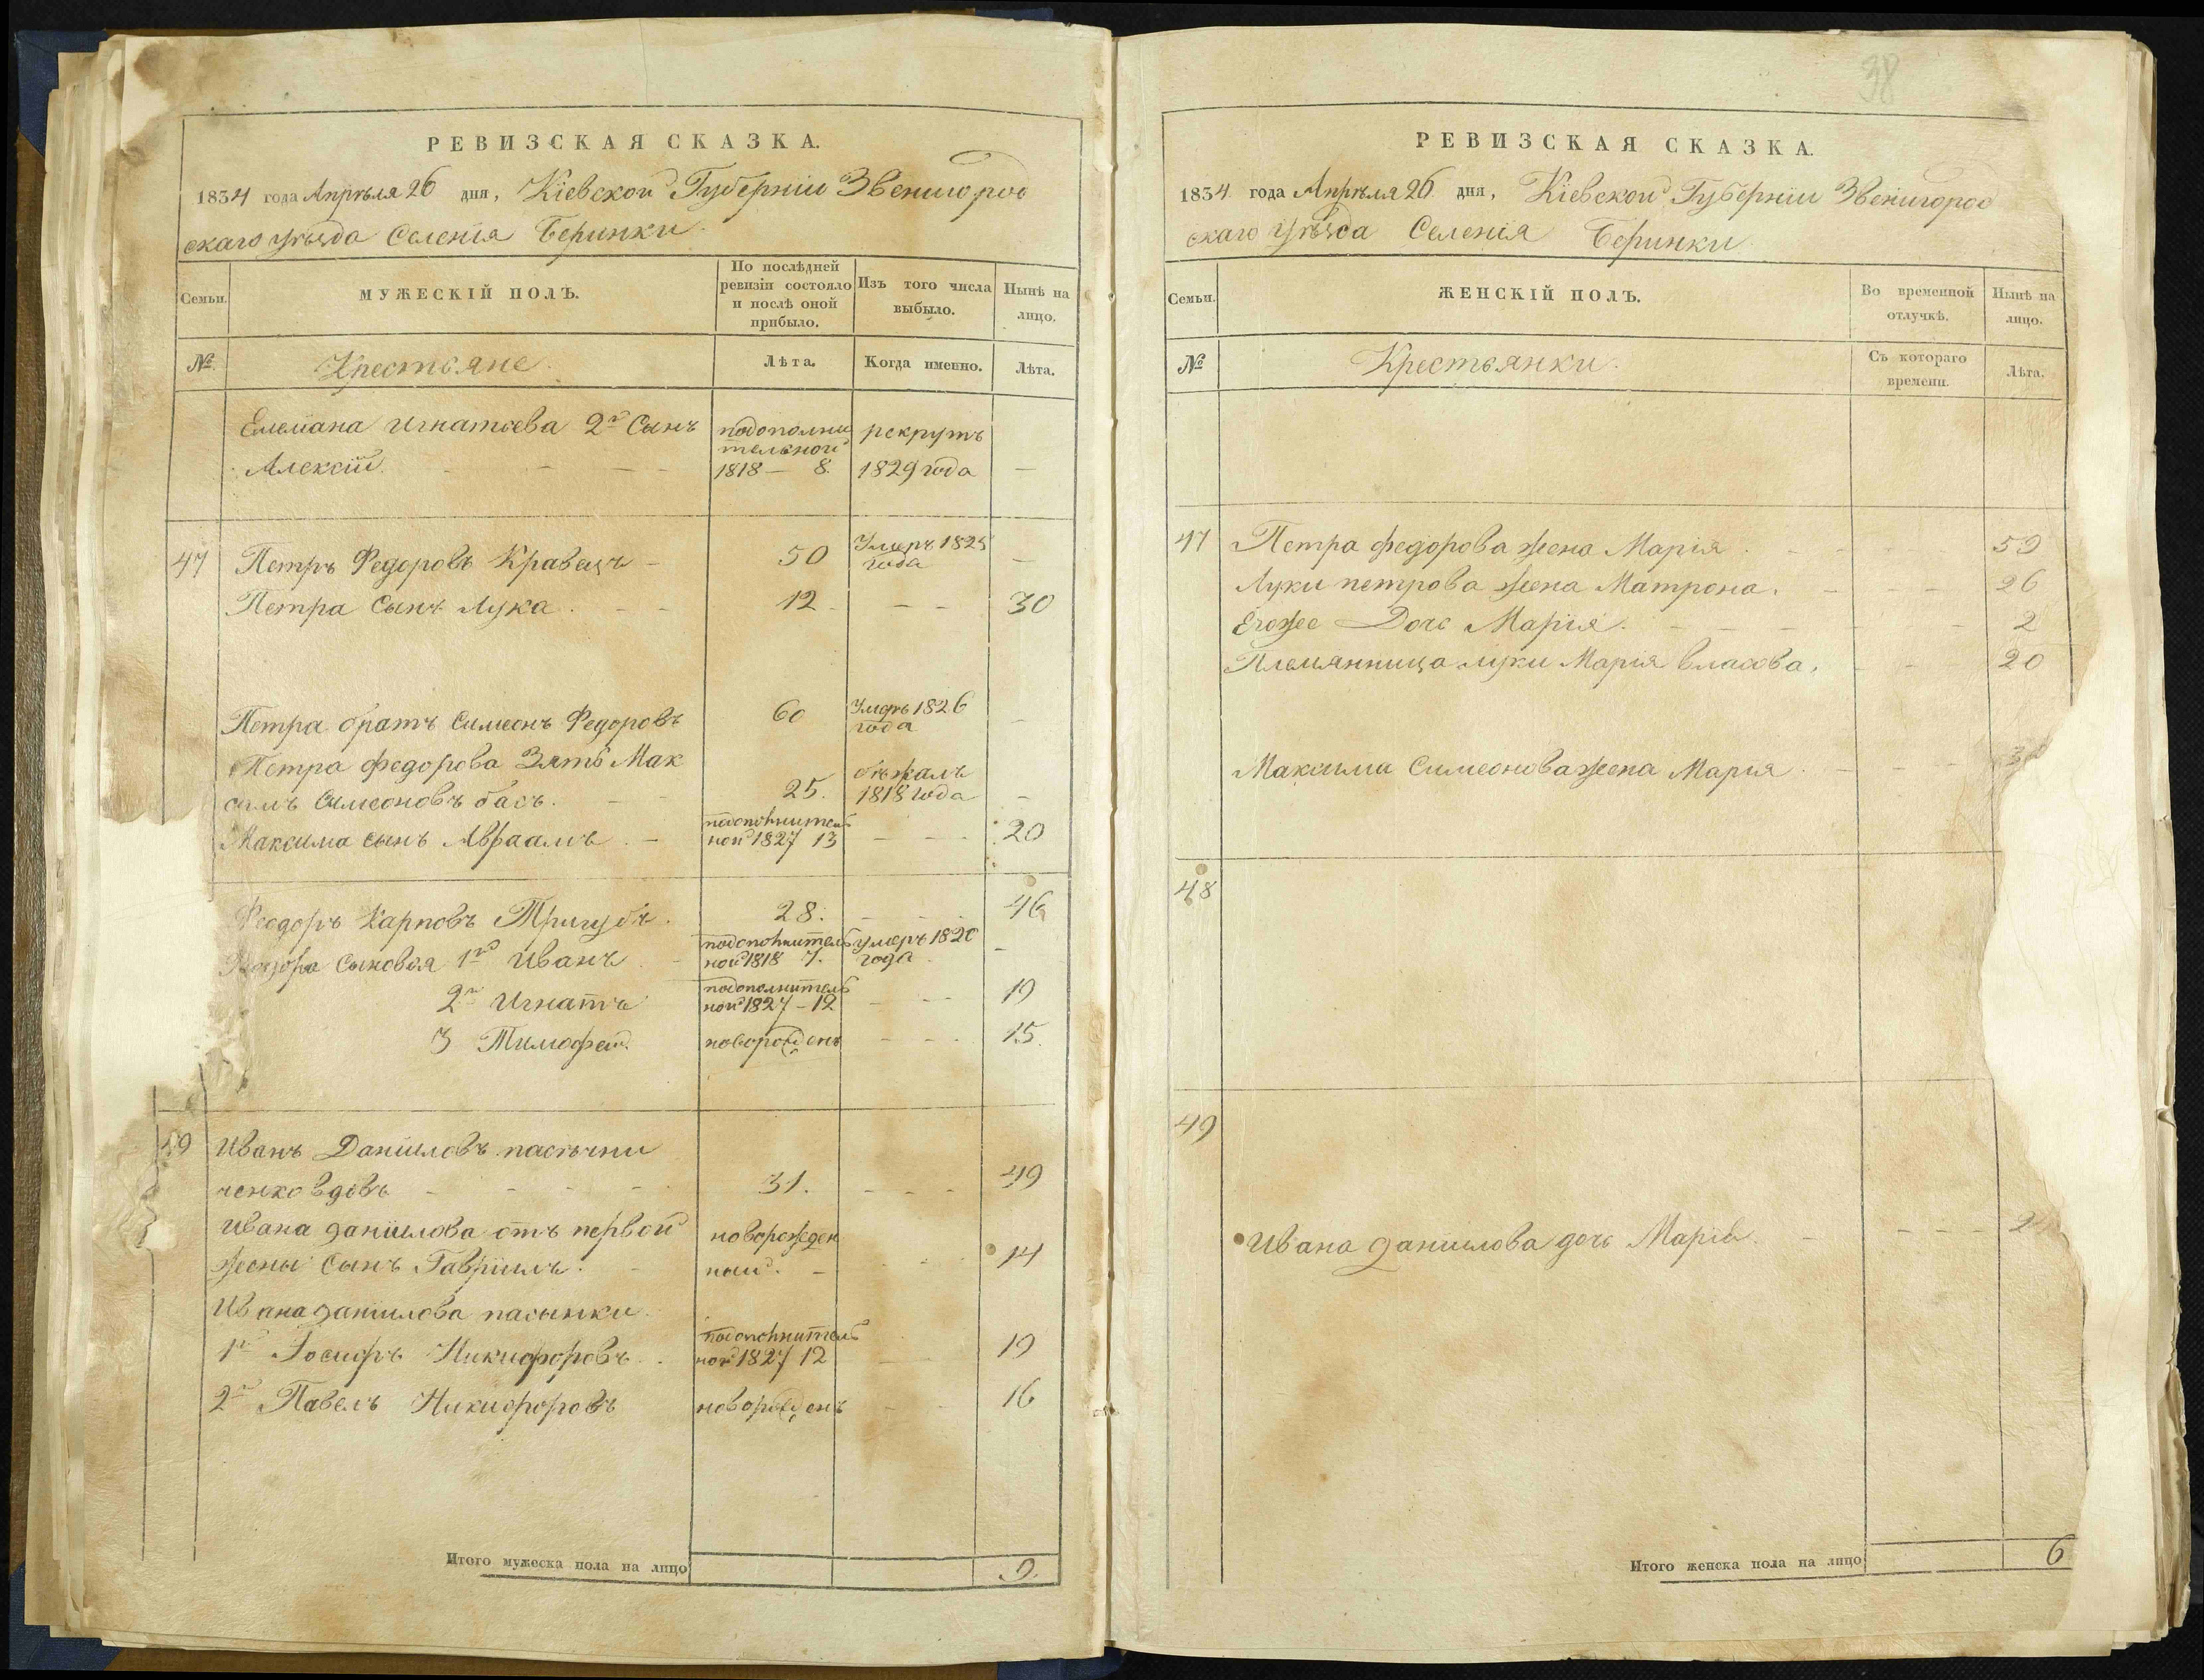 РЕВИЗСКАЯ СКАЗКА.
1834 года Апрѣля 26 дня, Кіевской Губерніи Звенигород
скаго уѣзда Селенія Беринки.
Семьи. МУЖЕСКІЙ ПОЛЪ. По послѣдней ревизіи состояло и послѣ оной прибыло. Изъ того числа выбыло. Нынѣ на лицо.
№. Крестьяне. Лѣта. Когда именно. Лѣта.
Емелїана Игнатьева 2й Сынъ подополни рекрутъ
тельной
Алексій. 1818 — 8. 1829 года —
47 Петръ Федоровъ Кравецъ — 50 Умеръ 1825 года —
Петра Сынъ Лука. — — 12 — — 30
Петра братъ Симеонъ Федоровъ 60 Умеръ 1826 года —
Петра Федорова Зять Мак
симъ Симеоновъ басъ. — — 25. бѣжалъ 1818 года —
подополнитель
Максима сынъ Авраамъ. — ной 1827 13 — — 20
Феодоръ Карповъ Тригубъ. 28. — — 46
подополнитель умеръ 1820
Феодора Сыновья 1й Иванъ — ной 1818 7. года. —
подополнитель
2й Игнатъ ной 1827 — 12 — — 19
3 Тимофей. новорожденъ — — 15.
49 Иванъ Даніиловъ пасѣчни
ченко вдовъ — — — — 31. — — — 49
Ивана Даніилова отъ первой новорожден
жены Сынъ Гавріилъ. — ный. — — 14
Ивана Даніилова пасынки.
подополнитель
1й Іосифъ Никифоровъ. ной 1827 12 — — 19
2й Павелъ Никифоровъ новорожденъ — — 16
Итого мужеска пола на лицо 9.
38
РЕВИЗСКАЯ СКАЗКА.
1834 года Апрѣля 26 дня, Кіевской Губерніи Звенигород
скаго Уѣзда Селенія Беринки
Семьи. ЖЕНСКІЙ ПОЛЪ. Во временной отлучкѣ. Нынѣ на лицо.
№ Крестьянки. Съ котораго времени. Лѣта.
47 Петра Федорова жена Марія. — — — — 59
Луки петрова жена Матрона. — — — 26
Егоже Дочь Марія. — — — — 2
Племянница луки Марія Власова. — — 20
Максима Симеонова жена Марія. — — —
48
49
Ивана Даніилова дочь Марія. — — — —
Итого женска пола на лицо 6